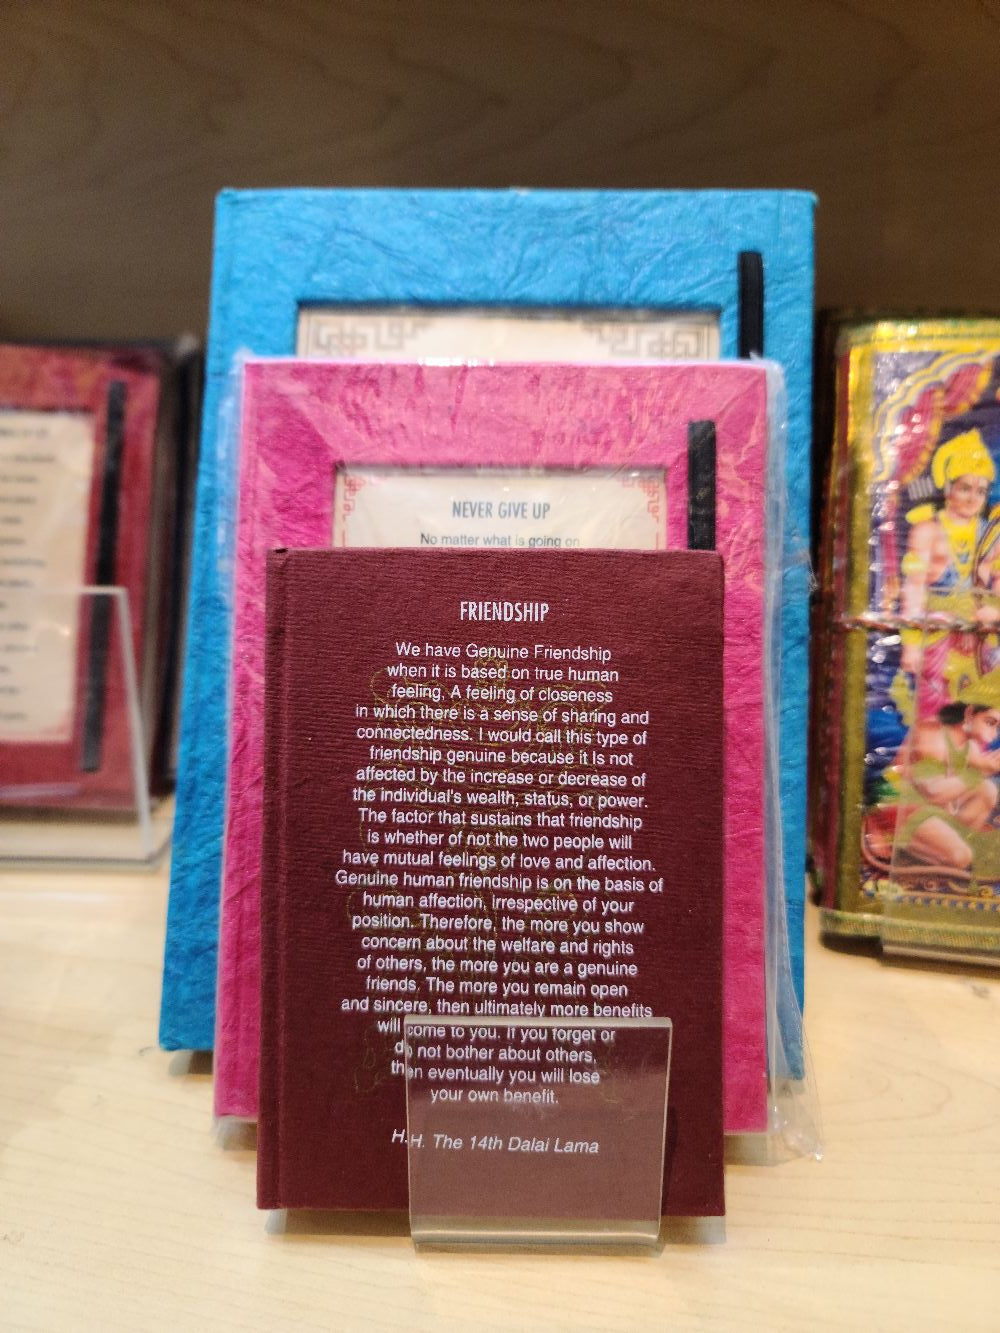 NEVER GIVE UP
No matter what is going on
FRIENDSHIP
We have Genuine Friendship
when it is based on true human
feeling, A feeling of closeness
in which there is a sense of sharing and
connectedness. I would call this type of
friendship genuine because it Is not
affected by the increase or decrease of
the individual's wealth, status, or power.
The factor that sustains that friendship
is whether of not the two people will
have mutual feelings of love and affection.
Genuine human friendship is on the basis of
human affection, irrespective of your
position. Therefore, the more you show
concern about the welfare and rights
of others, the more you are a genuine
friends. The more you remain open
and sincere, then ultimately more benefits
will come to you. If you forget or
do not bother about others,
then eventually you will lose
your own benefit.
H.H. The 14th Dalai Lama